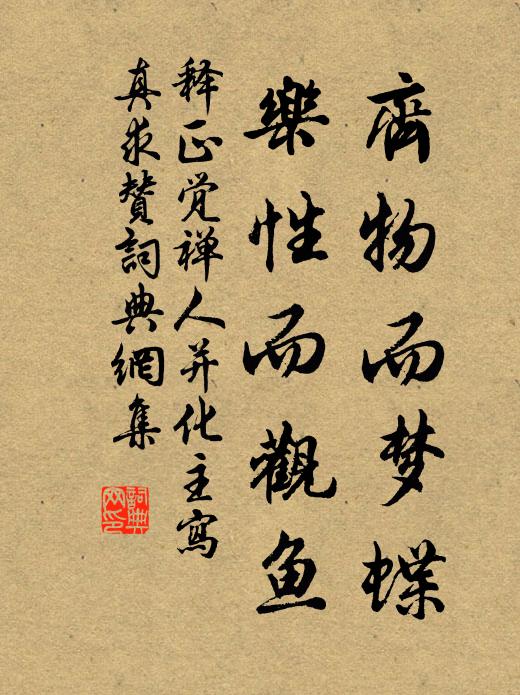 齊物而梦蝶
樂性而觀鱼
释正觉禅人并化主寫
真求賛詞典網集
詞典
网印